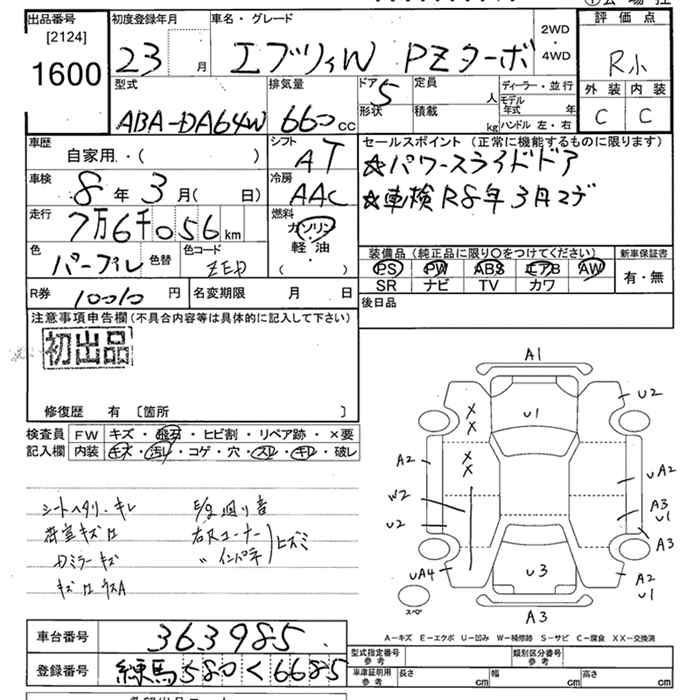 出品番号
[2124]
1600
初度登録年月
23 月
車名・グレード
エブリィW PZターボ
2WD
・
4WD
評価点
R小
外装 内装
C C
型式
ABA-DA64W
排気量
660 cc
ドア 5
形状
定員 人
積載 kg
ディーラー・並行
モデル年式 年
ハンドル 左・右
車歴
自家用・( )
シフト
AT
車検
8年3月( 日)
冷房
AAC
走行
7万6千056km
燃料
ガソリン
軽油
( )
色
パープル
色替
色コード
ZED
R券 10010円
名変期限 月 日
セールスポイント(正常に機能するものに限ります)
☆パワースライドドア
☆車検R8年3月マデ
装備品(純正品に限り○をつけてください)
PS PW ABS エアB AW
SR ナビ TV カワ
新車保証書
有・無
後日品
注意事項申告欄(不具合内容等は具体的に記入して下さい)
初出品
修復歴 有 〔箇所 〕
検査員記入欄
FW キズ・飛石・ヒビ割・リペア跡・×要
内装 キズ・汚レ・コゲ・穴・スレ・キレ・破レ
シートヘタリ・キレ
荷室キズロ
Dミラーキズ
キズロウスA
E/g廻り音
右Rコーナー
〃インパネ
ヒズミ
A1
U2
U1
XX
XX
A2
UA2
W2
A3
U1
U2
A3
UA4
U3
A2
U1
スペア
A3
A-キズ E-エクボ U-凹み W-補修跡 S-サビ C-腐食 XX-交換済
車台番号 363985
登録番号 練馬580く6685
型式指定番号
参考
類別区分番号
参考
車庫証明用
参考
長さ cm
幅 cm
高さ cm